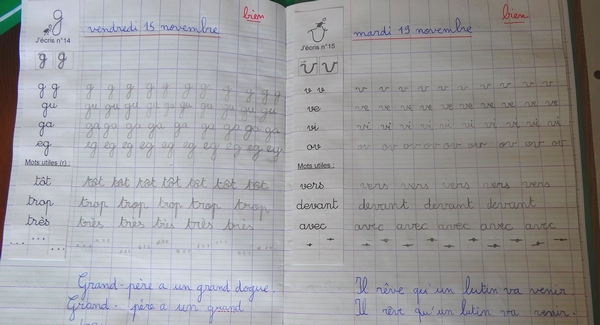 g
J'écris n°14
g g
bien
vendredi 15 novembre
g g g g g g g g g g g g
gu gu gu gu gu gu gu gu gu gu gu
ga ga ga ga ga ga ga ga ga ga
eg eg eg eg eg eg eg eg eg eg
Mots utiles (r) :
tôt tôt tôt tôt tôt tôt tôt
trop trop trop trop trop trop
très très très très très
Grand-père a un grand dogue.
Grand-père a un grand
v
J'écris n°15
v v
bien
mardi 19 novembre
v v v v v v v v v v v v
ve ve ve ve ve ve ve ve ve ve
vi vi vi vi vi vi vi vi vi vi
ov ov ov ov ov ov ov ov ov
Mots utiles :
vers vers vers vers vers vers
devant devant devant devant
avec avec avec avec avec avec
Il rêve qu'un lutin va venir.
Il rêve qu'un lutin va venir.